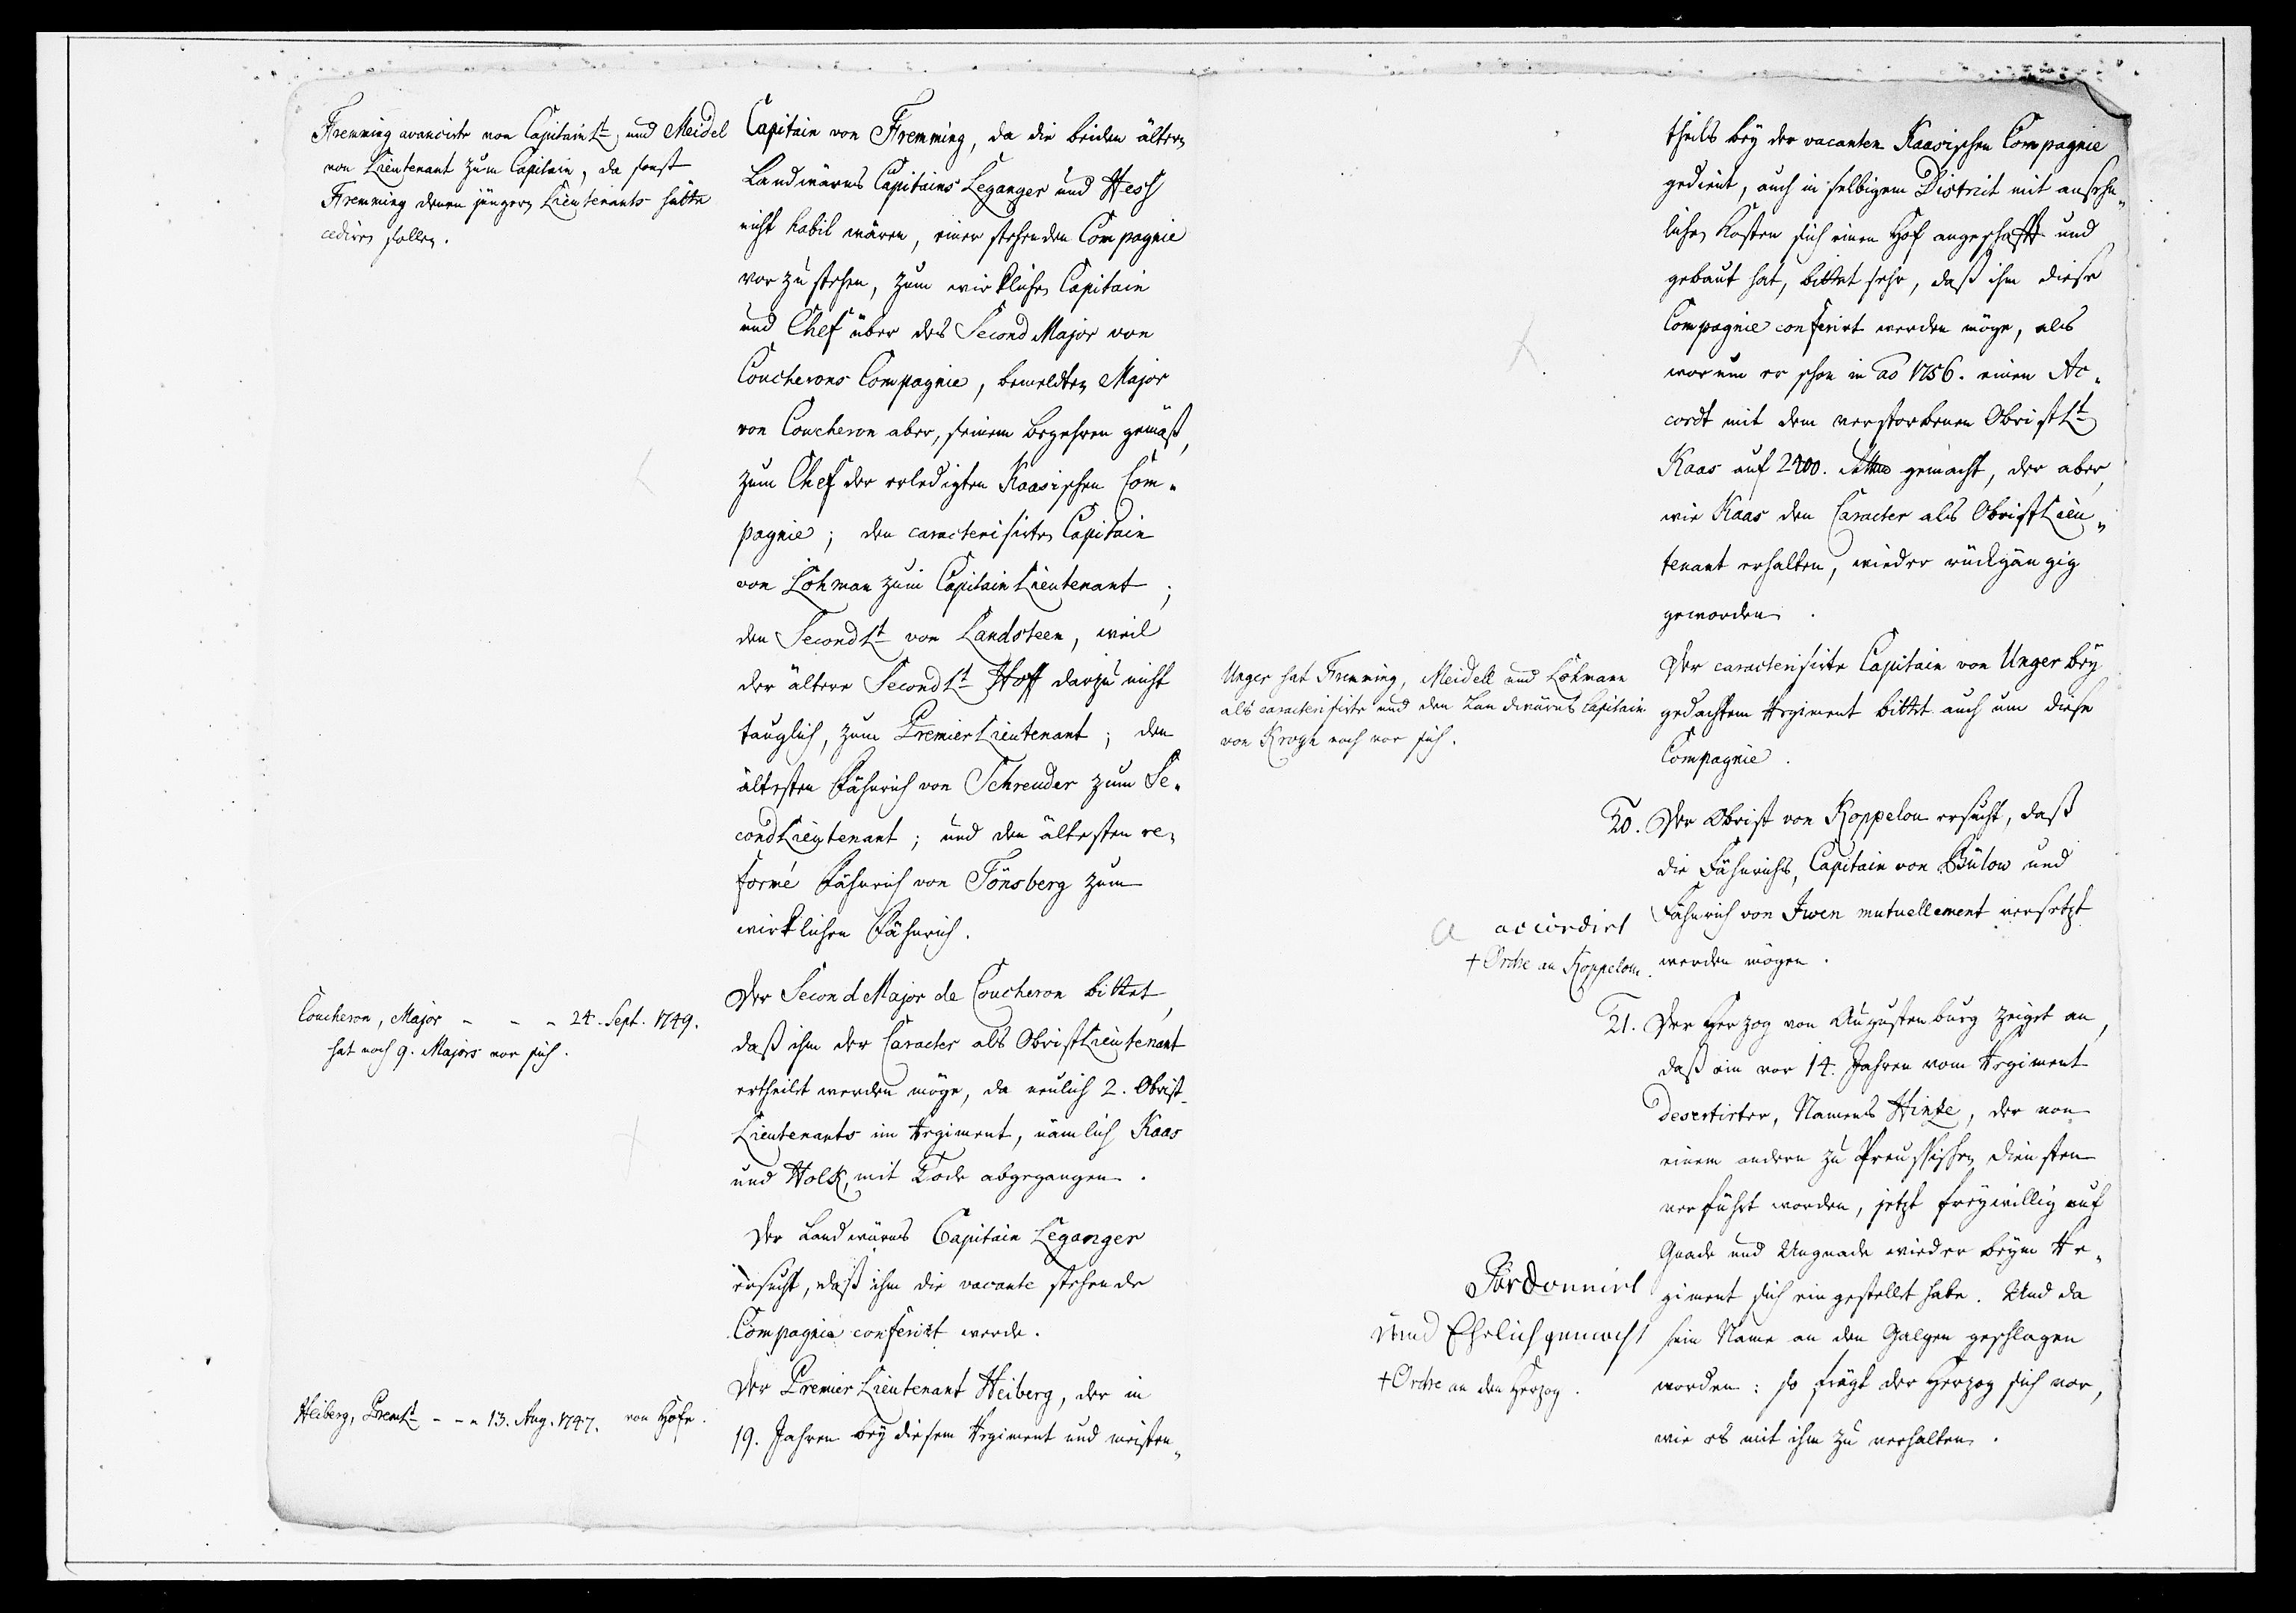 Fremming avancirte von CapitainLt und Meidel
von Lieutenant zum Capitain, da sonst
Fremming denen jüngern Lieutenants hätte
cediren sollen.
Capitain von Fremming, da die beiden ältern
Landwärns Capitains Leganger und Hesch
nicht habil wären, einer stehenden Compagnie
vorzustehen, zum wirklichen Capitain
und Chef über des Second Major von
Coucherons Compagnie, bemeldten Major
von Coucheron aber, seinem Begehren gemäß,
zum Chef der erledigten Kaasischen Com„
pagnie; den caracterisirten Capitain
von Lohman zum CapitainLieutenant;
den SecondLt von Landsteen, weil
der ältere SecondLt Hoff darzu nicht
tauglich, zum PremierLieutenant; den
ältesten Fähnrich von Schreuder zum Se„
condLieutenant; und den ältesten re„
formé Fähnrich von Tönsberg zum
wirklichen Fähnrich.
Coucheron, Major - - - 24. Sept. 1749.
hat noch 9. Majors vor sich.
Der SecondMajor de Coucheron bittet,
daß ihm der Caracter als ObristLieutenant
ertheilet werden möge, da neulich 2. Obrist-
Lieutenants im Regiment, nämlich Kaas
und Holk, mit Tode abgegangen.
Der Landwärns Capitain Leganger
ersucht, daß ihm die vacante stehende
Compagnie conferirt werde.
Heiberg, PremLt - - - 13. Aug. 1747. von Hofe.
Der PremierLieutenant Heiberg, der in
19. Jahren bey diesem Regiment und meisten„
theils bey der vacanten Kaasischen Compagnie
gedient, auch in selbigem District mit ansehn„
lichen Kosten sich einen Hof angeschafft und
gebaut hat, bittet sehr, daß ihm diese
Compagnie conferirt werden möge, als
worum er schon in ao 1756. einen Ac„
cordt mit dem verstorbenen ObristLt
Kaas auf 2400. gemacht, der aber,
wie Kaas den Caracter als ObristLieu„
tenant erhalten, wieder rückgängig
geworden.
Unger hat Fremming, Meidell und Lohmann
als caracterisirte und den Landwärns Capitain
von Krogh noch vor sich.
Der caracterisirte Capitain von Unger bey
gedachtem Regiment bittet auch um diese
Compagnie.
20. Der Obrist von Koppelou ersucht, daß
die Fähnrichs, Capitain von Bülow und
Fähnrich von Iwen mutuellement versetzt
werden mögen.
a accordirt
+ Ordre an Koppelou.
21. Der Herzog von Augustenburg zeiget an,
daß ein vor 14. Jahren vom Regiment
desertirter, Namens Hinke, der von
einem andern zu Preussischen Diensten
verführt worden, jetzt freywillig auf
Gnade und Ungnade wieder beym Re„
giment sich eingestellet habe. Und da
sein Name an den Galgen geschlagen
worden: so frägt der Herzog sich vor,
wie es mit ihm zu verhalten.
Pardonnirt
und Ehrlich gemacht
+ Ordre an den Herzog.